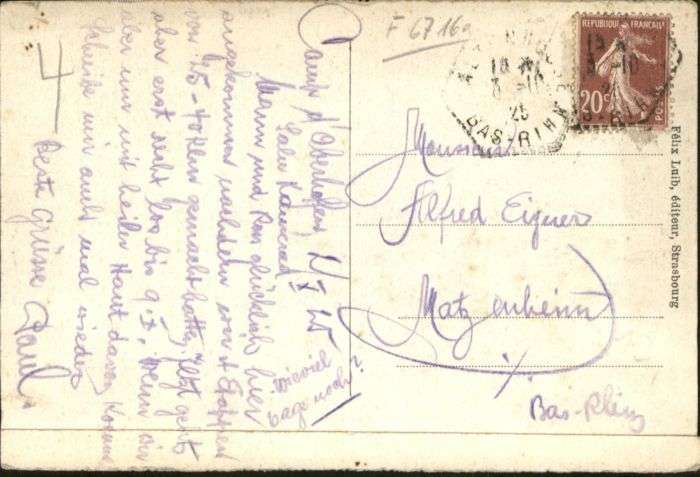 Camp d'Oberhofen 2/X 25
Lieber Kamerad
Mann und Ross glücklich hier
angekommen nachdem wir 4 Etappen
von 25-40 klm gemacht hatten. Jetzt geht's
aber erst recht los bis 9.X. Wenn wir
aber nur mit heiler Haut davon kommen
Schreibe mir auch mal wieder
Beste Grüsse
Paul.
Wieviel
Tage noch?
F 6716a
25
BAS-RHIN
REPUBLIQUE FRANÇAISE
20c
POSTES
Monsieur
Alfred Eigner
Matzenheim
Bas-Rhin
Félix Luib, éditeur, Strasbourg